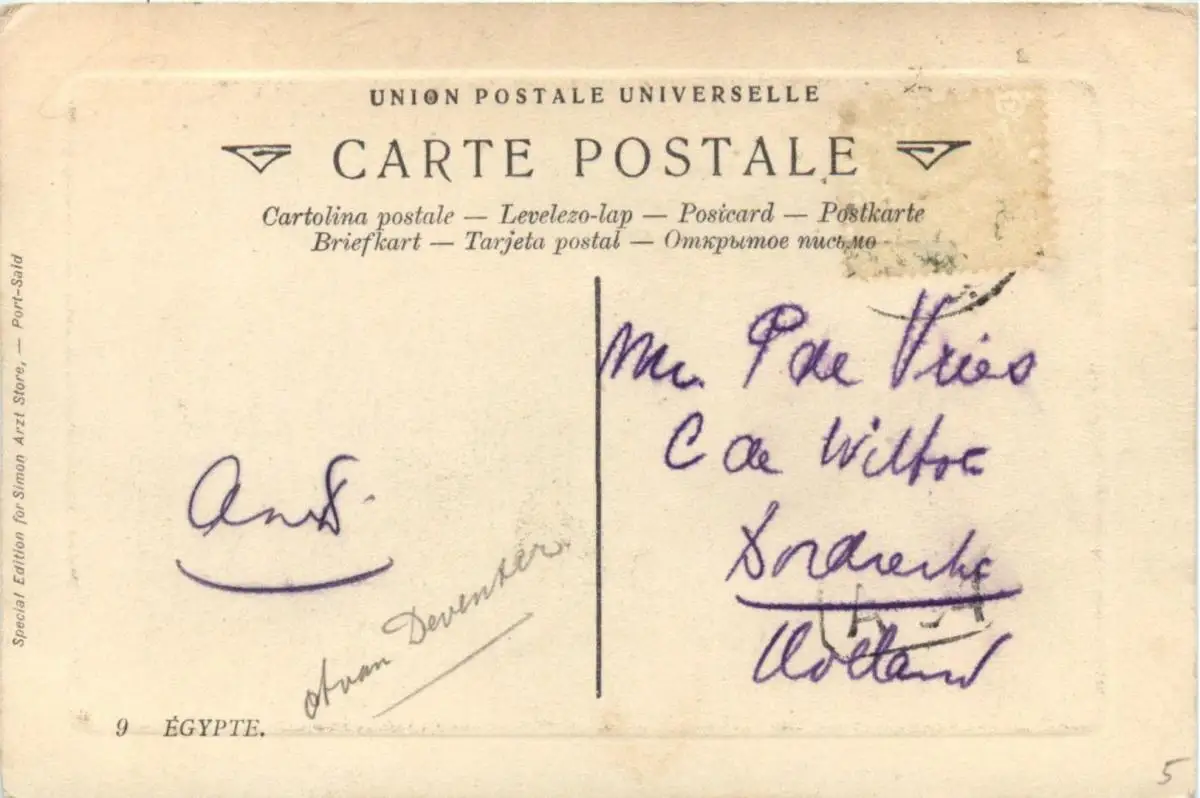 UNION POSTALE UNIVERSELLE
CARTE POSTALE
Cartolina postale — Levelezo-lap — Postcard — Postkarte
Briefkart — Tarjeta postal — Открытое письмо
Special Edition for Simon Arzt Store, — Port-Said
P de Vries
C de Wittstr
Dordrecht
Holland
van Deventer
9 ÉGYPTE.
5